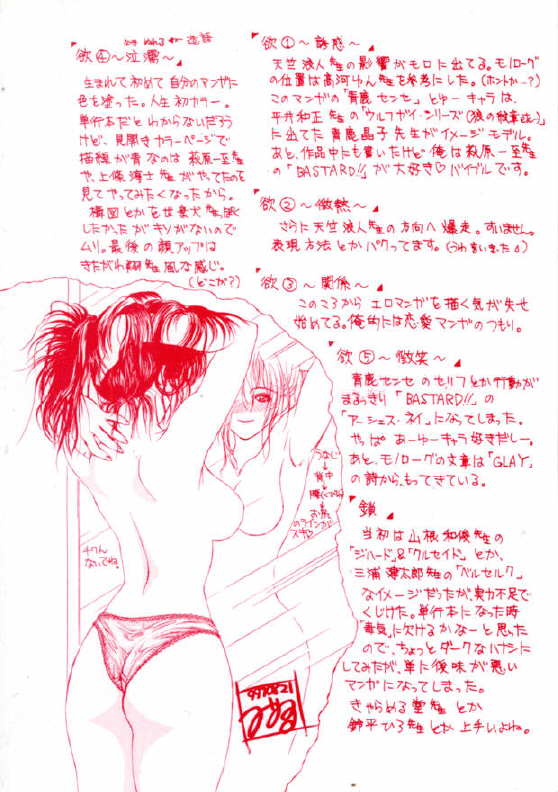 欲①～誘惑～
天竺浪人先生の影響がモロに出てる。モノローグ
の位置は高河ゆん先生を参考にした。(ホントかー?)
このマンガの「青鹿センセ」とゆーキャラは、
平井和正先生の「ウルフガイ・シリーズ」
に出てた青鹿晶子先生がイメージモデル。
あと、作品中にも書いたけど俺は萩原一至先生
の「BASTARD!!」が大好き♡バイブルです。
欲②～微熱～
さらに天竺浪人先生の方向へ爆走。すいません。
表現方法とかパクってます。
欲③～関係～
このころからエロマンガを描く気が失せ
始めてる。俺的には恋愛マンガのつもり。
欲④～泣濡～
生まれて初めて自分のマンガに
色を塗った。人生初カラー。
単行本だとわからないだろう
けど、見開きカラーページで
描線が青なのは萩原一至先生
や、上條淳士先生がやってたのを
見てやってみたくなったから。
構図とかを世棄犬先生風に
したかったがキリがないので
ムリ。最後の顔アップは
きたがわ翔先生風な感じ。
(どこが?)
欲⑤～微笑～
青鹿センセのセリフとか行動が
まるっきり「BASTARD!!」の
「アーシェス・ネイ」になってしまった。
やっぱあーゆーキャラ好きだしー。
あと、モノローグの文章は「GLAY」
の詩から、もってきている。
鎖
当初は山根和俊先生の
「ジハード」&「クルセイド」とか、
三浦建太郎先生の「ベルセルク」
なイメージだったが、実力不足で
くじけた。単行本になった時
「毒気」に欠けるかなーと思った
ので、ちょっとダークなハナシに
してみたが、単に後味が悪い
マンガになってしまった。
きゃらめる堂先生とか
鈴平ひろ先生とか上手いよね。
うなじ
↓
背中
↓
腰(くびれ)
↓
お尻
のラインが
スキ♡
チクん
ないでね。